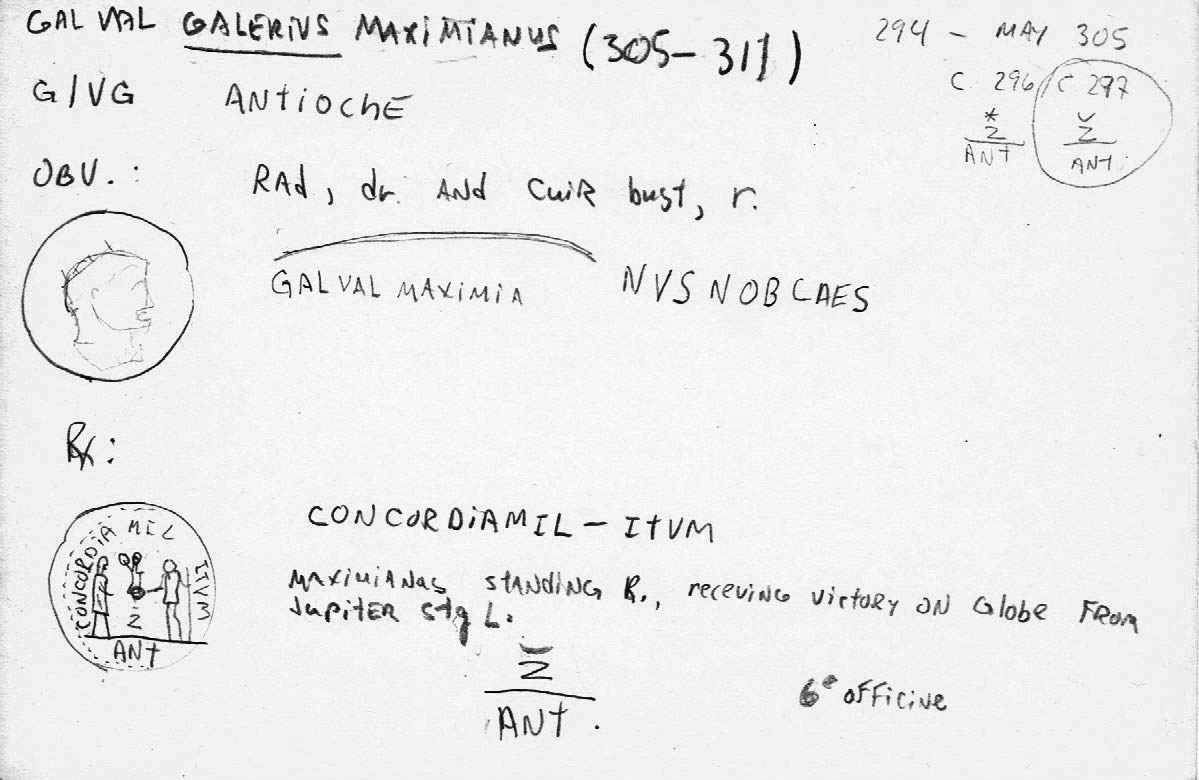 GAL VAL GALERIUS MAXIMIANUS (305-311)
294 - MAY 305
C. 296 / C 297
* ˘
Z Z
ANT ANT.
G/VG ANTIOCHE
OBV. : RAd, dr. AND CUIR bust, r.
GAL VAL MAXIMIA NVS NOB CAES
Rx:
CONCORDIA MIL ITVM
Z
ANT
CONCORDIAMIL - ITVM
MAXIMIANUS STANDING R., receving victory ON Globe FROM
Jupiter stg L.
˘
Z
ANT.
6e officine